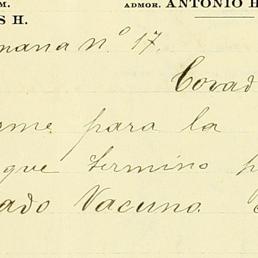 M.
ADMOR. ANTONIO H
S H.
mana nº 17.
Covad
rme para la
que termino p
ado Vacuno.